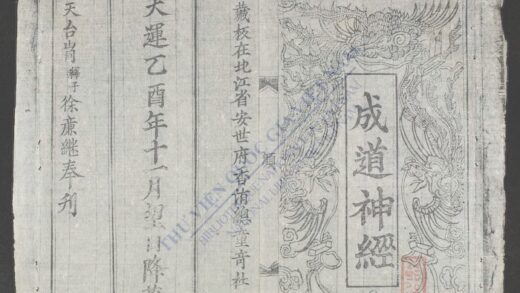 成道神經
在北江省安世府香侑總童奇社
天運乙酉年十一月望日降
天台肖弟子徐廉繼奉刊
THƯ VIỆN QUỐC GIA VIỆT NAM